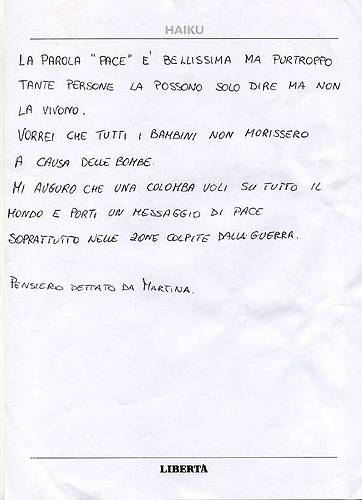 HAIKU
LA PAROLA "PACE" E' BELLISSIMA MA PURTROPPO
TANTE PERSONE LA POSSONO SOLO DIRE MA NON
LA VIVONO.
VORREI CHE TUTTI I BAMBINI NON MORISSERO
A CAUSA DELLE BOMBE.
MI AUGURO CHE UNA COLOMBA VOLI SU TUTTO IL
MONDO E PORTI UN MESSAGGIO DI PACE
SOPRATTUTTO NELLE ZONE COLPITE DALLA GUERRA.
PENSIERO DETTATO DA MARTINA.
LIBERTÀ